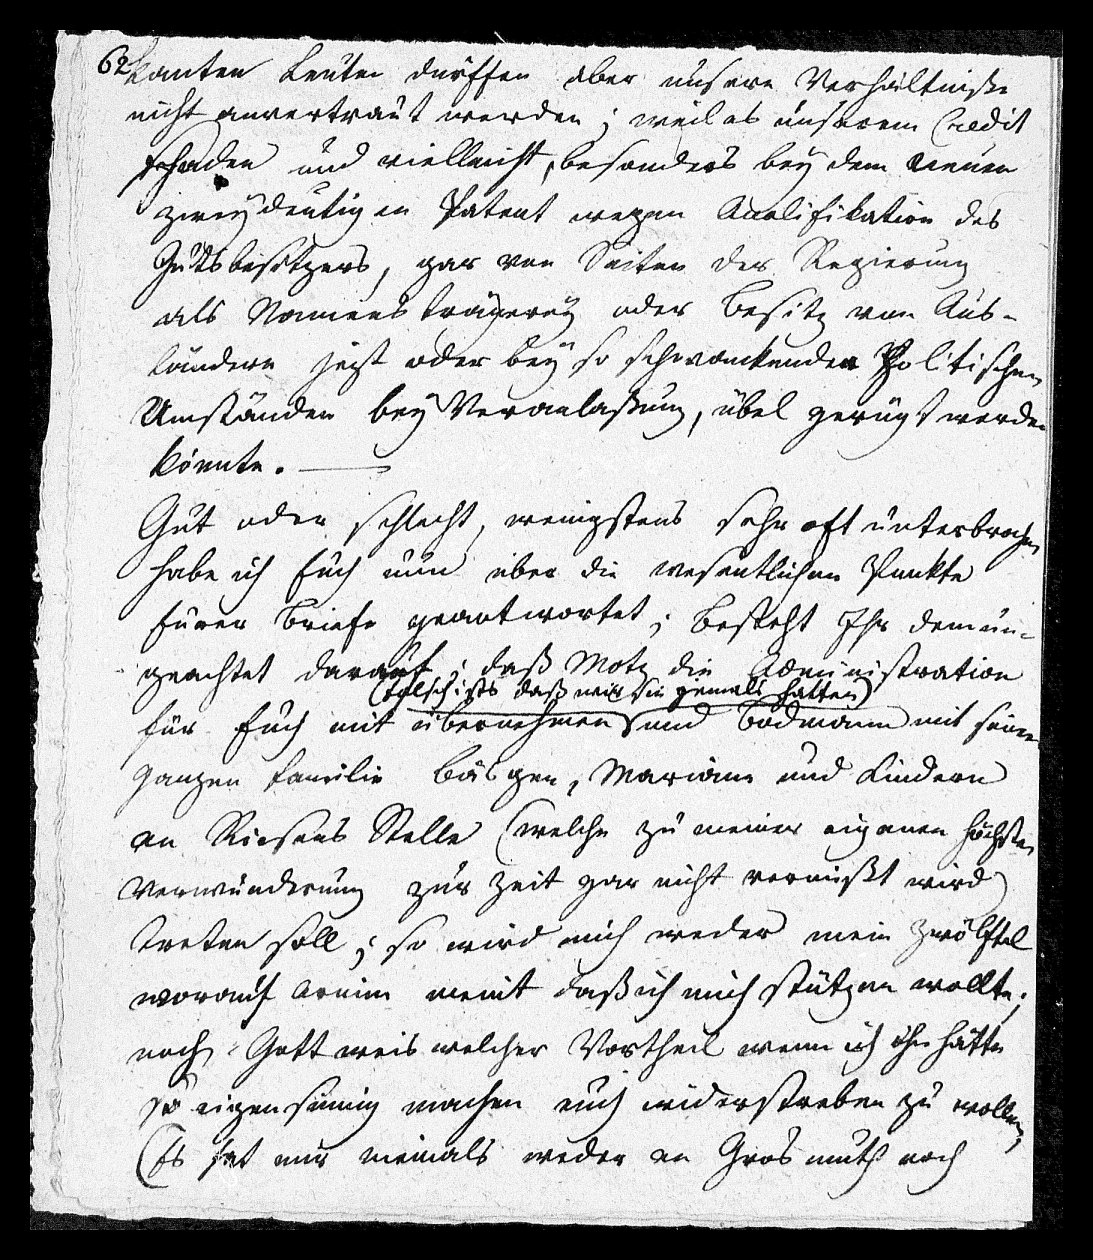 62
kanten Leuten dürffen aber unsere Verhältniße
nicht anvertraut werden; weil es unserem Credit
schaden und vielleicht, besonders bey dem neuen
zweydeutigen Patent wegen Qualifikation des
Gutsbesitzers, gar von Seiten der Regierung
als Namensträgerey oder Besitz von Aus-
ländern jezt oder bey so schwankenden Politischen
Umständen bey Veranlaßung, übel gerügt werden
könnte. —
Gut oder schlecht, wenigstens sehr oft unterbrochen
habe ich Euch nun über die wesentlichen Punkte
Eurer Briefe geantwortet; besteht Ihr demun-
geachtet darauf; daß Motz die Administration
(falsch ists daß wir sie jemals hatten)
für Euch mit übernehmen und Bodmann mit seiner
ganzen Familie Marianne und Kindern
an Riesens Stelle (welche zu meiner eigenen höchsten
Verwunderung zur Zeit gar nicht vermißt wird)
treten soll; so wird mich weder mein Zwölftel
worauf Arnim meint daß ich mich stützen wollte;
noch Gott weis welcher Vortheil wenn ich ihn hätte
so eigensinnig machen euch widerstreben zu wollen,
Es hat mir niemals weder an Grosmuth noch